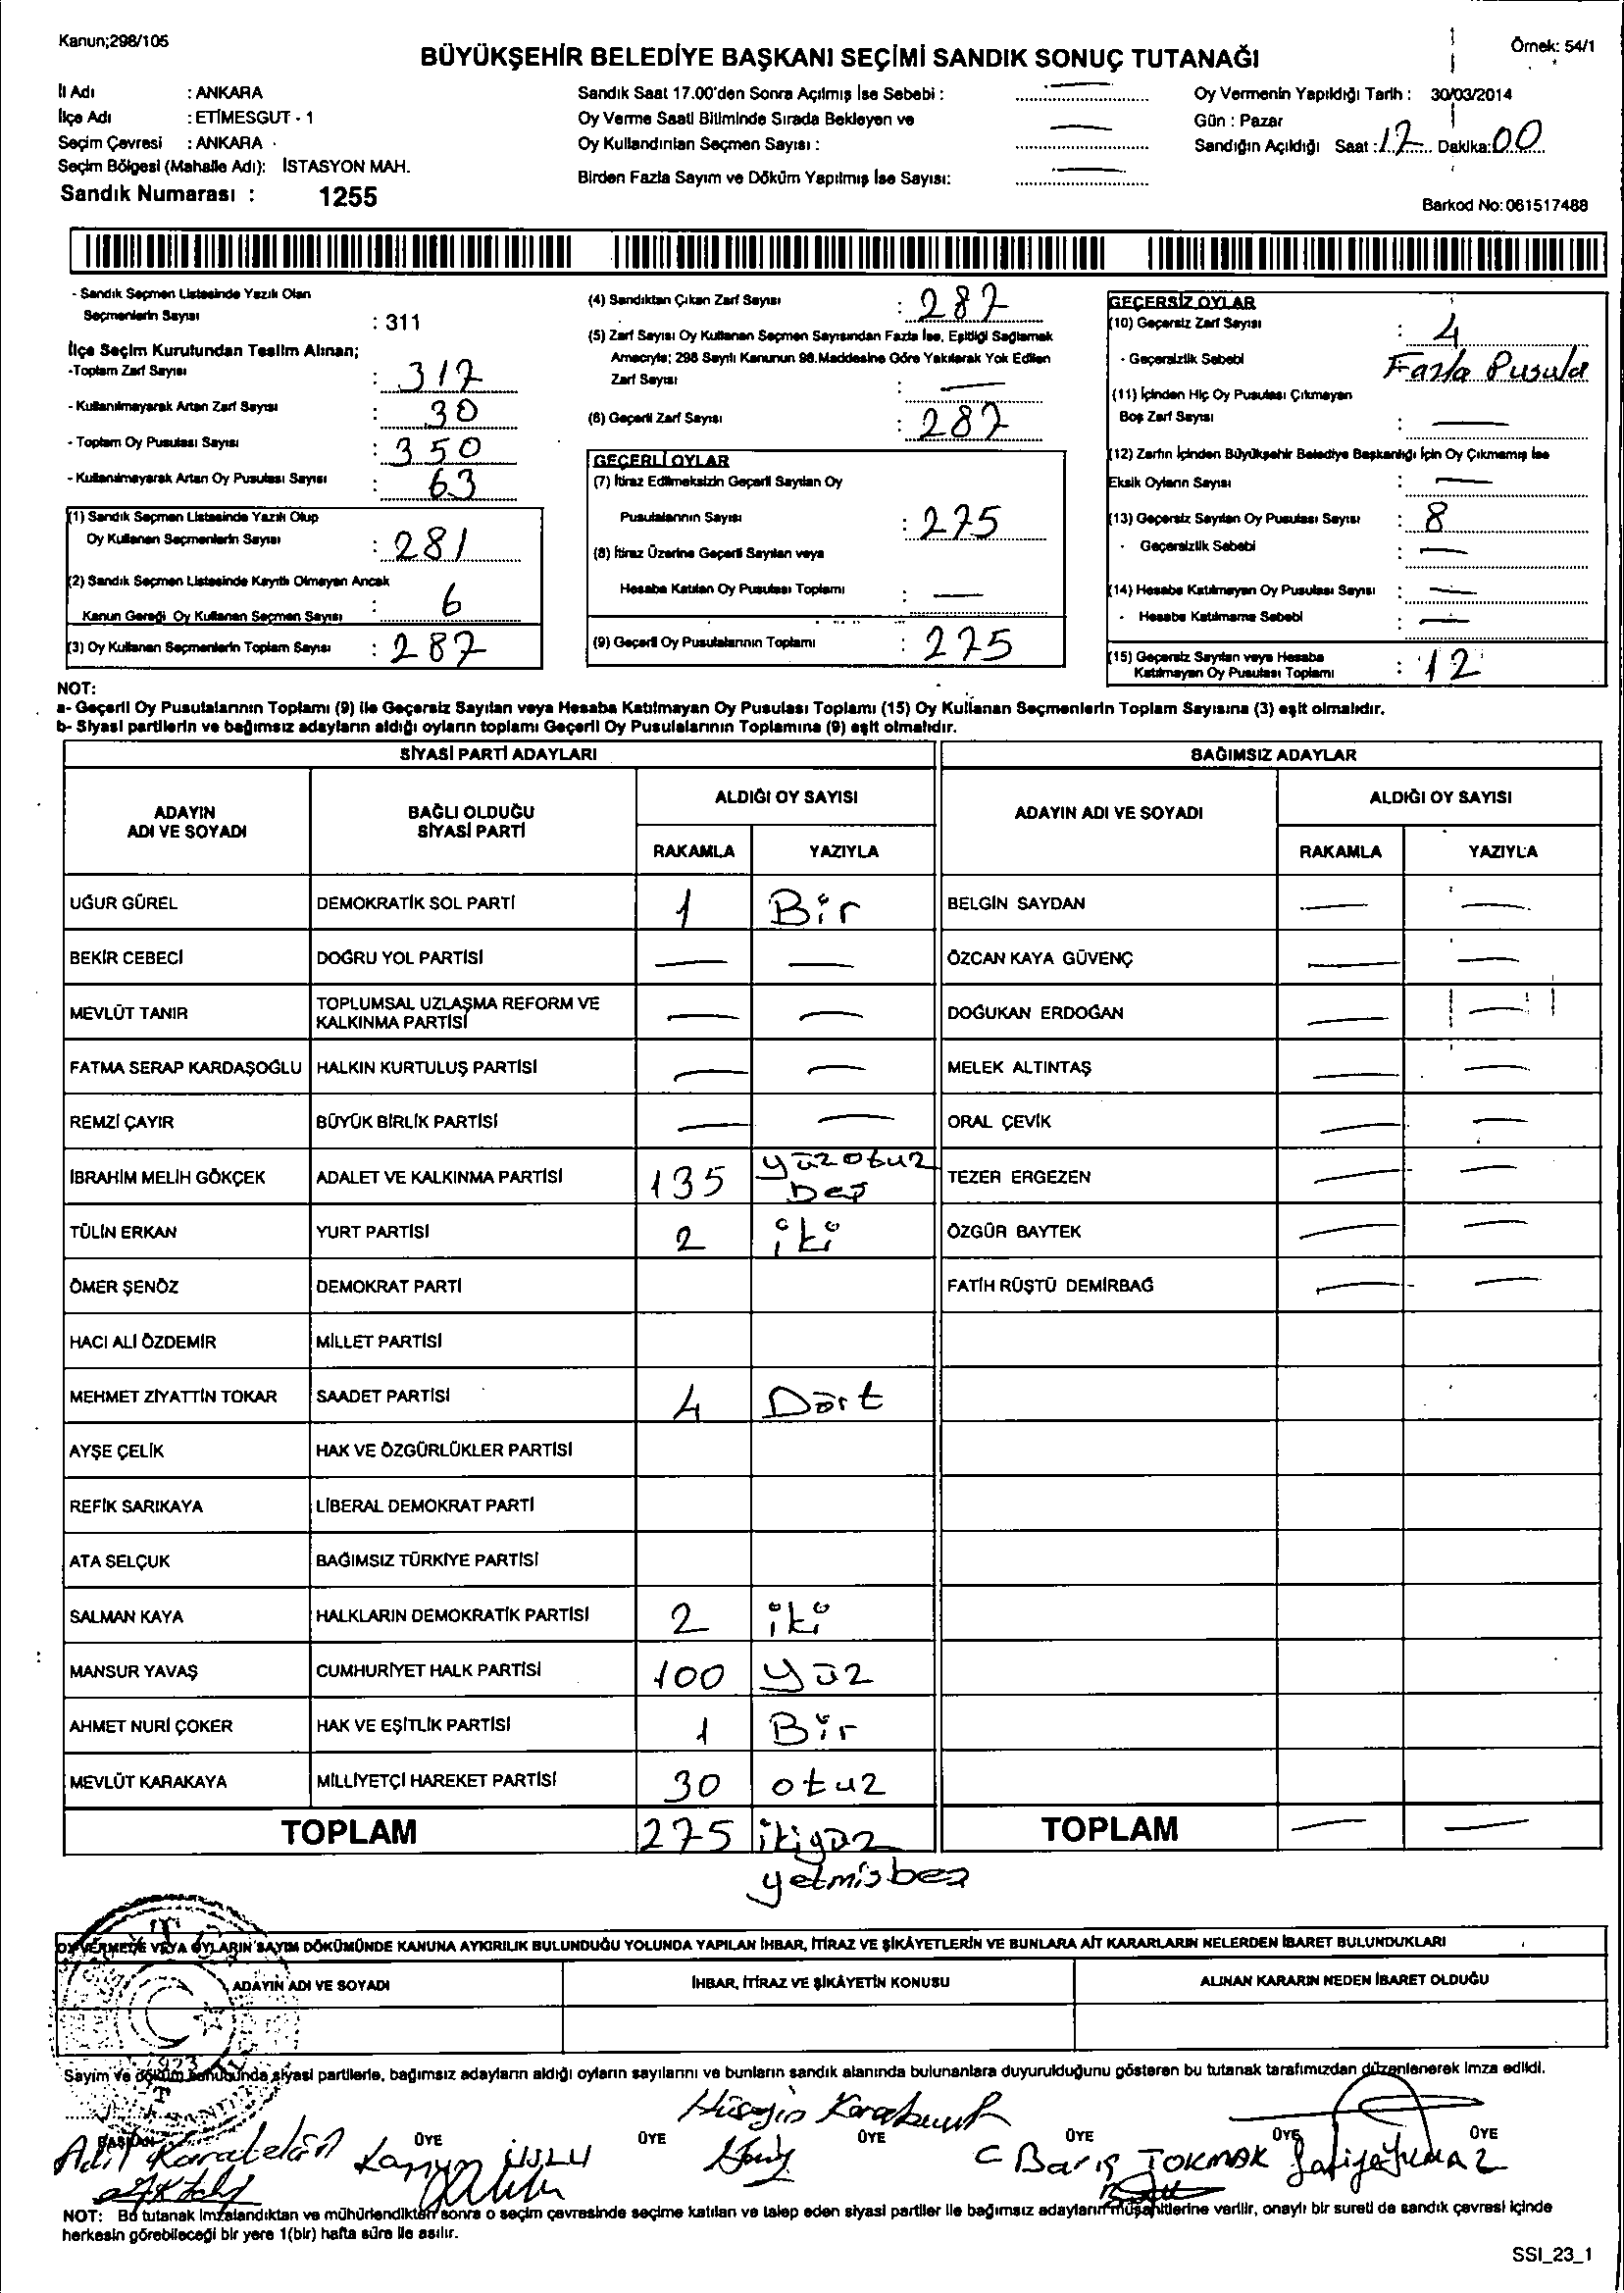 Kanun;298/105
Örnek: 54/1
BÜYÜKŞEHİR BELEDİYE BAŞKANI SEÇİMİ SANDIK SONUÇ TUTANAĞI
İl Adı : ANKARA
İlçe Adı : ETİMESGUT - 1
Seçim Çevresi : ANKARA
Seçim Bölgesi (Mahalle Adı): İSTASYON MAH.
Sandık Numarası : 1255
Sandık Saat 17.00'den Sonra Açılmış İse Sebebi : —
Oy Verme Saati Bitiminde Sırada Bekleyen ve
Oy Kullandırılan Seçmen Sayısı : —
Birden Fazla Sayım ve Döküm Yapılmış İse Sayısı: —
Oy Vermenin Yapıldığı Tarih : 30/03/2014
Gün : Pazar
Sandığın Açıldığı Saat : 17 Dakika: 00
Barkod No: 061517488
- Sandık Seçmen Listesinde Yazılı Olan
Seçmenlerin Sayısı : 311
İlçe Seçim Kurulundan Teslim Alınan;
-Toplam Zarf Sayısı : 317
- Kullanılmayarak Artan Zarf Sayısı : 30
- Toplam Oy Pusulası Sayısı : 350
- Kullanılmayarak Artan Oy Pusulası Sayısı : 63
(1) Sandık Seçmen Listesinde Yazılı Olup
Oy Kullanan Seçmenlerin Sayısı : 281
(2) Sandık Seçmen Listesinde Kayıtlı Olmayan Ancak
Kanun Gereği Oy Kullanan Seçmen Sayısı : 6
(3) Oy Kullanan Seçmenlerin Toplam Sayısı : 287
(4) Sandıktan Çıkan Zarf Sayısı : 287
(5) Zarf Sayısı Oy Kullanan Seçmen Sayısından Fazla İse, Eşitliği Sağlamak
Amacıyla; 298 Sayılı Kanunun 98.Maddesine Göre Yakılarak Yok Edilen
Zarf Sayısı : —
(6) Geçerli Zarf Sayısı : 287
GEÇERLİ OYLAR
(7) İtiraz Edilmeksizin Geçerli Sayılan Oy
Pusulalarının Sayısı : 275
(8) İtiraz Üzerine Geçerli Sayılan veya
Hesaba Katılan Oy Pusulası Toplamı : —
(9) Geçerli Oy Pusulalarının Toplamı : 275
GEÇERSİZ OYLAR
(10) Geçersiz Zarf Sayısı : 4
- Geçersizlik Sebebi Fazla Pusula
(11) İçinden Hiç Oy Pusulası Çıkmayan
Boş Zarf Sayısı : —
(12) Zarfın İçinden Büyükşehir Belediye Başkanlığı İçin Oy Çıkmamış İse
Eksik Oyların Sayısı : —
(13) Geçersiz Sayılan Oy Pusulası Sayısı : 8
- Geçersizlik Sebebi : —
(14) Hesaba Katılmayan Oy Pusulası Sayısı : —
- Hesaba Katılmama Sebebi : —
(15) Geçersiz Sayılan veya Hesaba
Katılmayan Oy Pusulası Toplamı : 12
NOT:
a- Geçerli Oy Pusulalarının Toplamı (9) ile Geçersiz Sayılan veya Hesaba Katılmayan Oy Pusulası Toplamı (15) Oy Kullanan Seçmenlerin Toplam Sayısına (3) eşit olmalıdır.
b- Siyasi partilerin ve bağımsız adayların aldığı oyların toplamı Geçerli Oy Pusulalarının Toplamına (9) eşit olmalıdır.
SİYASİ PARTİ ADAYLARI BAĞIMSIZ ADAYLAR
ADAYIN ADI VE SOYADI BAĞLI OLDUĞU SİYASİ PARTİ ALDIĞI OY SAYISI ADAYIN ADI VE SOYADI ALDIĞI OY SAYISI
RAKAMLA YAZIYLA RAKAMLA YAZIYLA
UĞUR GÜREL DEMOKRATİK SOL PARTİ 1 Bir BELGİN SAYDAN — —
BEKİR CEBECİ DOĞRU YOL PARTİSİ — — ÖZCAN KAYA GÜVENÇ — —
MEVLÜT TANIR TOPLUMSAL UZLAŞMA REFORM VE KALKINMA PARTİSİ — — DOĞUKAN ERDOĞAN — —
FATMA SERAP KARDAŞOĞLU HALKIN KURTULUŞ PARTİSİ — — MELEK ALTINTAŞ — —
REMZİ ÇAYIR BÜYÜK BİRLİK PARTİSİ — — ORAL ÇEVİK — —
İBRAHİM MELİH GÖKÇEK ADALET VE KALKINMA PARTİSİ 135 yüzotuz beş TEZER ERGEZEN — —
TÜLİN ERKAN YURT PARTİSİ 2 iki ÖZGÜR BAYTEK — —
ÖMER ŞENÖZ DEMOKRAT PARTİ FATİH RÜŞTÜ DEMİRBAĞ — —
HACI ALİ ÖZDEMİR MİLLET PARTİSİ
MEHMET ZİYATTİN TOKAR SAADET PARTİSİ 4 Dört
AYŞE ÇELİK HAK VE ÖZGÜRLÜKLER PARTİSİ
REFİK SARIKAYA LİBERAL DEMOKRAT PARTİ
ATA SELÇUK BAĞIMSIZ TÜRKİYE PARTİSİ
SALMAN KAYA HALKLARIN DEMOKRATİK PARTİSİ 2 iki
MANSUR YAVAŞ CUMHURİYET HALK PARTİSİ 100 yüz
AHMET NURİ ÇOKER HAK VE EŞİTLİK PARTİSİ 1 Bir
MEVLÜT KARAKAYA MİLLİYETÇİ HAREKET PARTİSİ 30 otuz
TOPLAM 275 ikiyüz TOPLAM — —
yetmişbeş
OY VERMEDE VEYA OYLARIN SAYIM DÖKÜMÜNDE KANUNA AYKIRILIK BULUNDUĞU YOLUNDA YAPILAN İHBAR, İTİRAZ VE ŞİKÂYETLERİN VE BUNLARA AİT KARARLARIN NELERDEN İBARET BULUNDUKLARI
ADAYIN ADI VE SOYADI İHBAR, İTİRAZ VE ŞİKÂYETİN KONUSU ALINAN KARARIN NEDEN İBARET OLDUĞU
1923
Sayım ve döküm sonucunda siyasi partilerle, bağımsız adayların aldığı oyların sayılarını ve bunların sandık alanında bulunanlara duyurulduğunu gösteren bu tutanak tarafımızdan düzenlenerek imza edildi.
BAŞKAN ÜYE ÜYE ÜYE ÜYE ÜYE ÜYE
Hüseyin
Adil USLU C Barış TOKMAK
NOT: Bu tutanak imzalandıktan ve mühürlendikten sonra o seçim çevresinde seçime katılan ve talep eden siyasi partiler ile bağımsız adayların müşahitlerine verilir, onaylı bir sureti de sandık çevresi içinde
herkesin görebileceği bir yere 1(bir) hafta süre ile asılır.
SSI_23_1